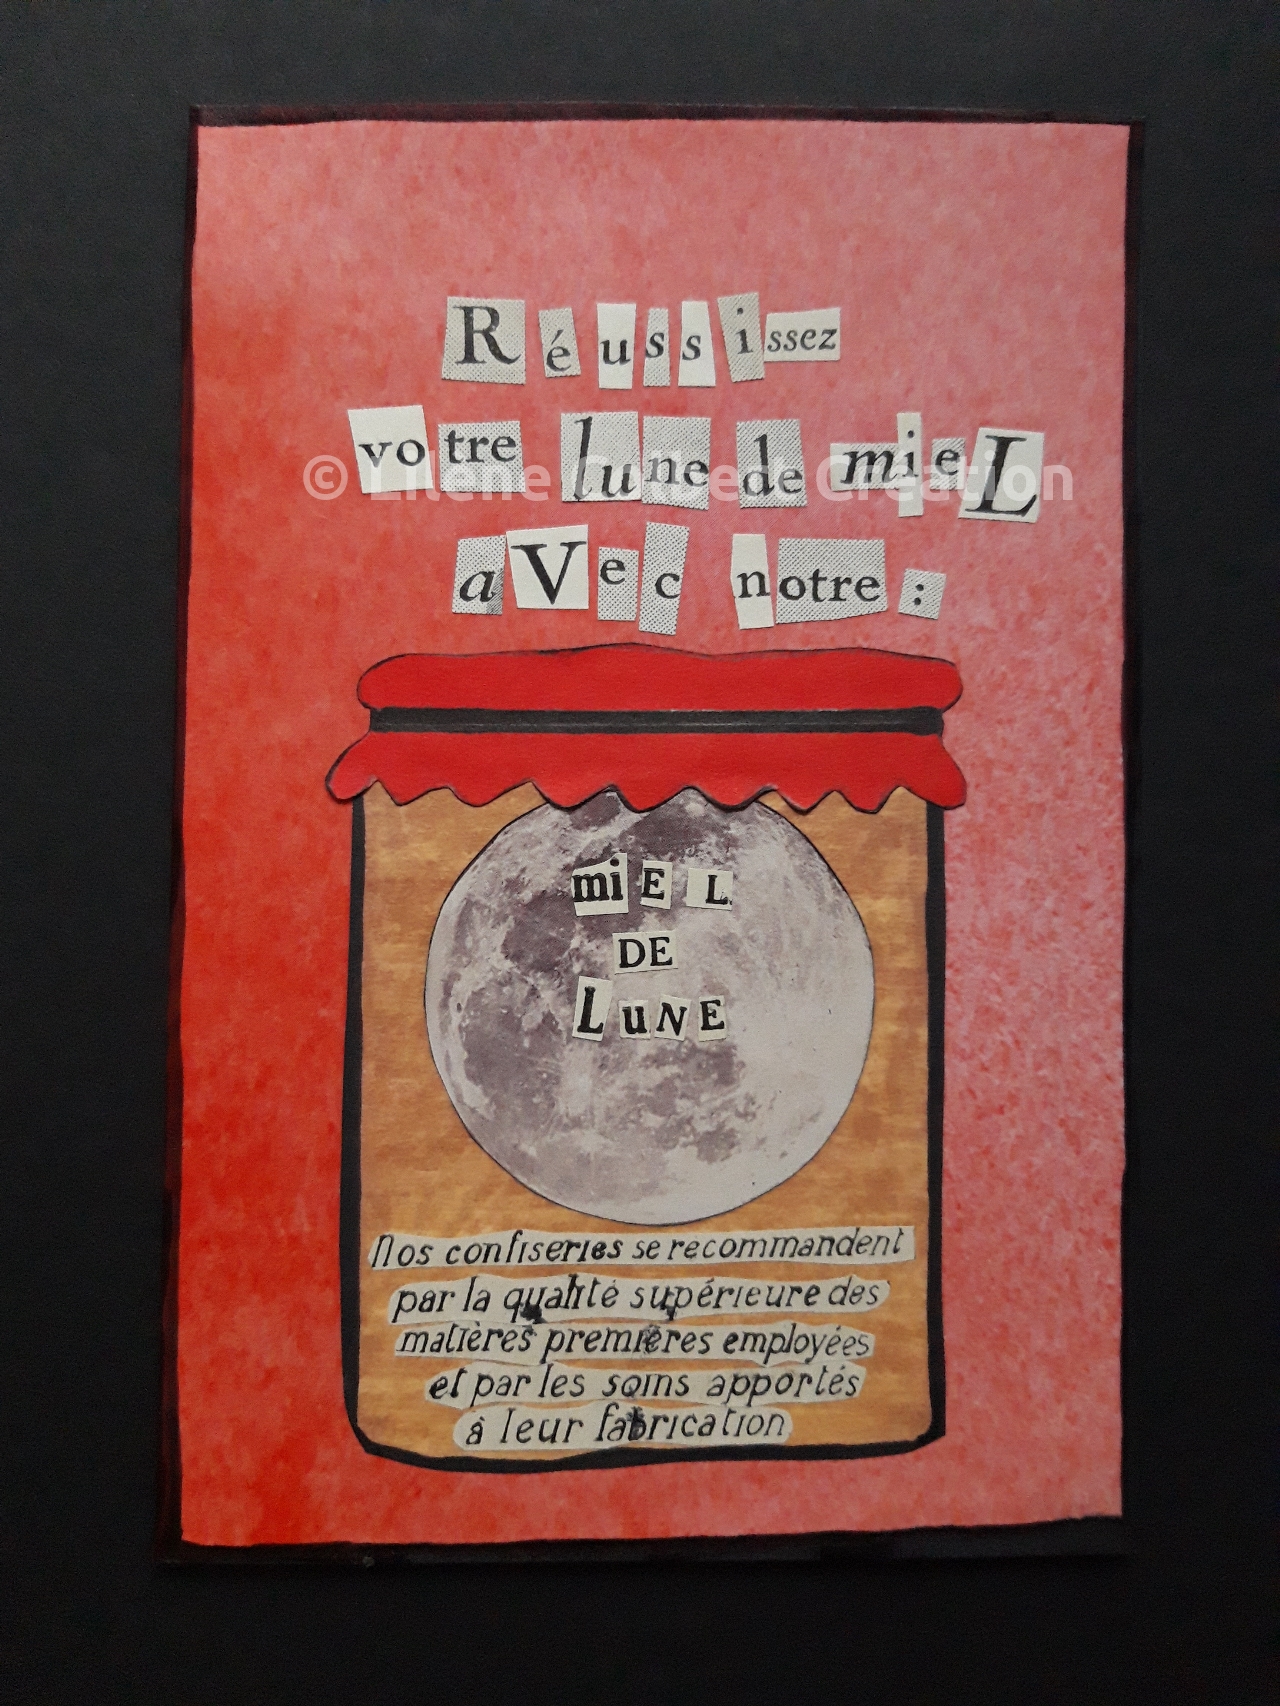 Réussissez
votre lune de mieL
© Lilene Guibert Création
aVec notre :
miEL
DE
LuNE
Nos confiseries se recommandent
par la qualité supérieure des
matières premières employées
et par les soins apportés
à leur fabrication